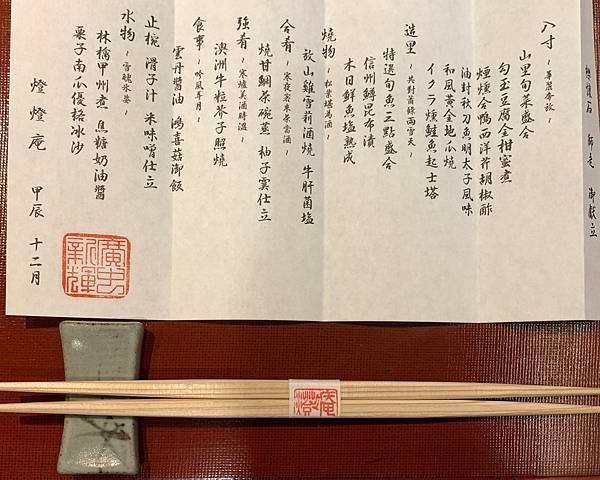 懷石 師走 御献立
八寸 ~華居冬秋~
山里旬菜盛合
勾玉豆腐金柑蜜煮
煙燻合鴨西洋芹胡椒酢
油封秋刀魚明太子風味
和風黃金地瓜燒
イクラ燻鮭魚起士塔
造里 ~共對蕭條雨雪天~
特選旬魚三點盛合
信州鱒昆布漬
本日鮮魚塩熟成
燒物 ~松葉堪為酒~
放山雞雪莉酒燒 牛肝菌塩
合肴 ~寒夜客來茶當酒~
燒甘鯛茶碗蒸 柚子霙仕立
強肴 ~寒爐美酒時溫~
澳洲牛粒芥子照燒
食事 ~吟風弄月~
雲丹醬油 鴻喜菇御飯
止椀 滑子汁 米味噌仕立
水物 ~雪魄氷姿~
林檎甲州煮 焦糖奶油醬
栗子南瓜優格冰沙
燈燈庵 甲辰 十二月
燈燈庵